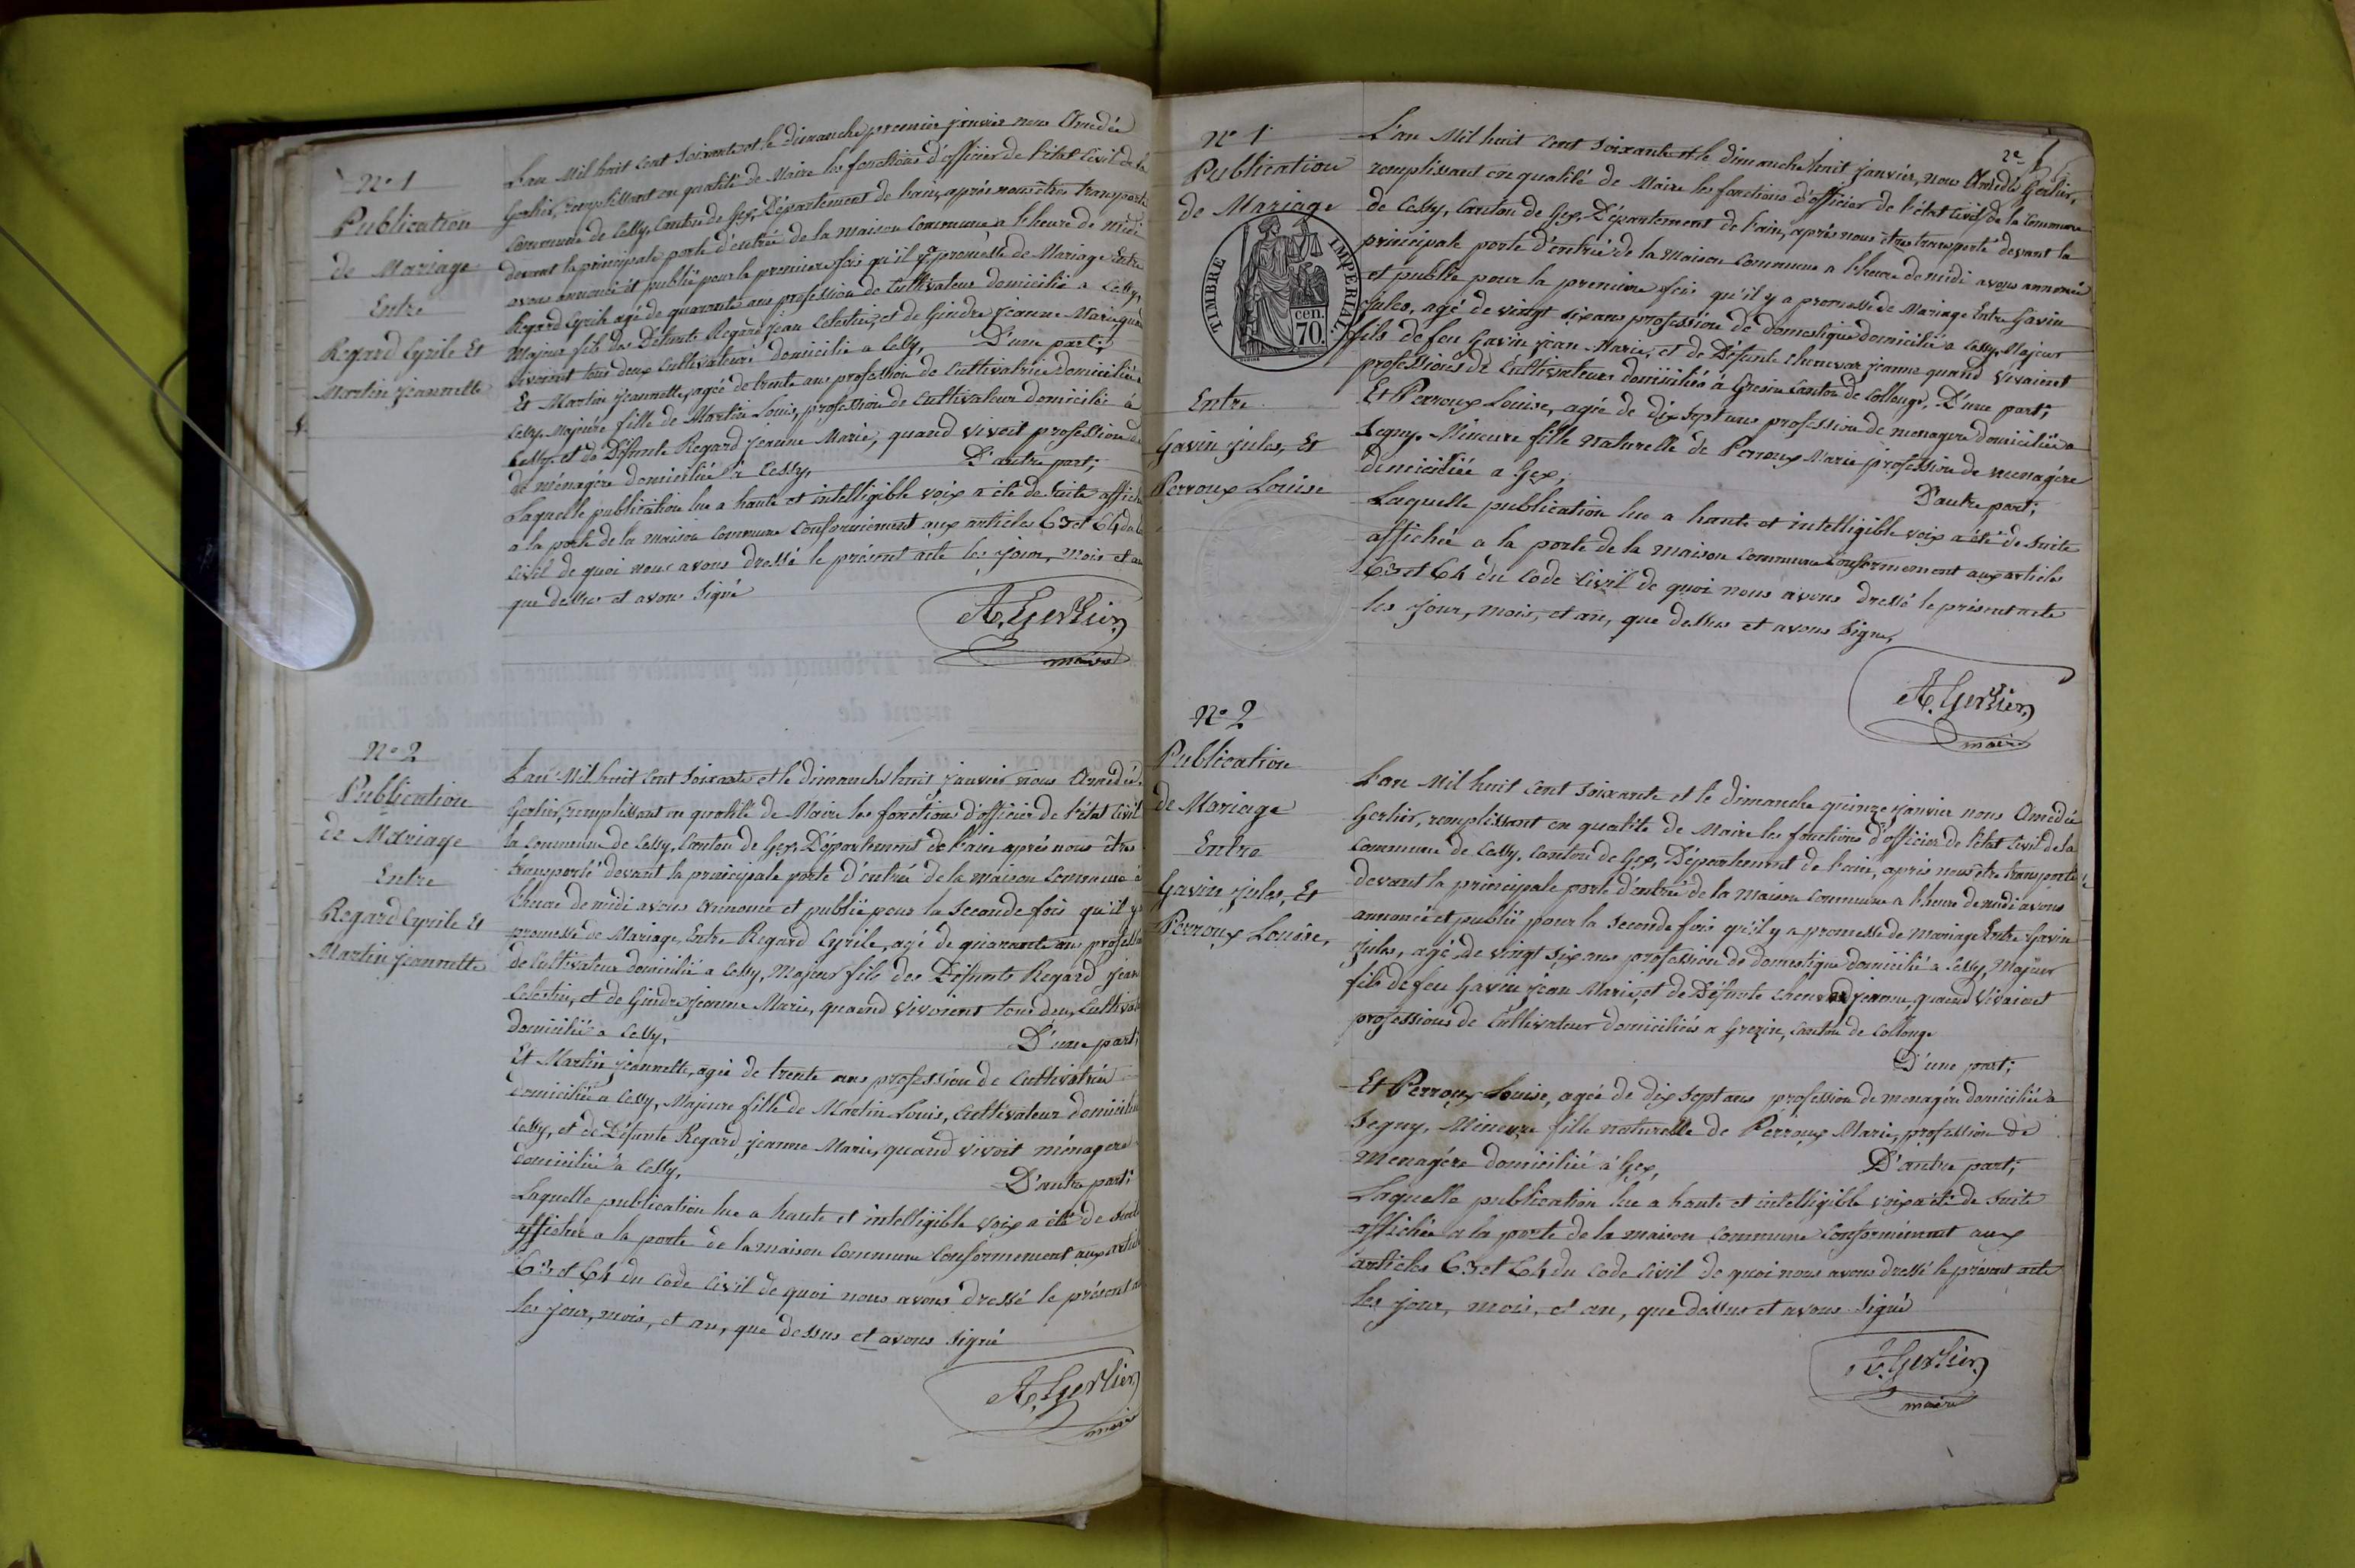 N° 1
Publication
de Mariage
Entre
Regard Cyrile Et
Martin jeannette
L'an Mil huit cent soixante et le dimanche premier janvier nous Amédée
Gerlier, remplissant en qualité de Maire les fonctions d'officier de l'état Civil de la
Commune de Cessy, Canton de Gex, Département de l'ain, après nous être transporté
devant la principale porte d'entrée de la maison Commune a l'heure de midi
avons annoncé et publié pour la premiere fois qu'il y a promesse de Mariage Entre
Regard Cyrile agé de quarante ans profession de Cultivateur domicilié a Cessy,
Majeur fils des Défunts Regard jean Celestin, et de Gindre jeanne Marie quand
vivoient tous deux Cultivateurs domicilié a Cessy, D'une part;
Et Martin jeannette, agée de trente ans profession de Cultivatrice domiciliée a
Cessy, Majeure fille de Martin Louis, profession de Cultivateur domicilié à
Cessy et de Défunte Regard jeanne Marie, quand vivoit profession
de ménagère domiciliée à Cessy, D'autre part;
Laquelle publication lue a haute et intelligible voix a été de suite affichée
a la porte de la maison Commune Conformément aux articles 63 et 64 du
Civil de quoi nous avons dressé le présent acte les jour, mois et an
que dessus et avons signé
A. Gerlier
maire
N° 2
Publication
de Mariage
Entre
Regard Cyrile Et
Martin jeannette
L'an Mil huit Cent Soixante et le dimanche huit janvier nous Amédée
Gerlier, remplissant en qualité de Maire les fonctions d'officier de l'état Civil
la commune de Cessy, Canton de Gex, Département de l'ain après nous être
transporté devant la principale porte d'entrée de la maison Commune à
l'heure de midi avons annoncé et publié pour la Seconde fois qu'il y a
promesse de Mariage, Entre Regard Cyrile, agé de quarante ans profession
de Cultivateur domicilié a Cessy, Majeur fils des Défunts Regard jean
Celestin, et de Gindre jeanne Marie, quand vivoient tous deux Cultivateurs
domicilié a Cessy, D'une part;
Et Martin jeannette, agée de trente ans profession de Cultivatrice
domiciliée a Cessy, Majeure fille de Martin Louis, Cultivateur domicilié
Cessy, et de Défunte Regard jeanne Marie, quand vivoit ménagere
domiciliée a Cessy, D'autre part;
Laquelle publication lue a haute et intelligible voix a été de suite
affichée a la porte de la maison Commune Conformement aux articles
63 et 64 du Code Civil de quoi nous avons dressé le présent acte
les jour, mois, et an, que dessus et avons signé
A. Gerlier
maire
N° 1
Publication
de Mariage
TIMBRE IMPERIAL.
cen.
70.
Entre
Gavin jules, Et
Perroux Louise
L'an Mil huit Cent Soixante et le dimanche huit janvier, nous Amédée Gerlier,
remplissant en qualité de Maire les fonctions d'officier de l'état Civil de la Commune
de Cessy, Canton de Gex, Département de l'ain, après nous être transporté devant la
principale porte d'entrée de la Maison Commune a l'heure de midi avons annoncé
et publié pour la premiere fois qu'il y a promesse de Mariage Entre Gavin
jules, agé de vingt six ans profession de domestique domicilié a Cessy, Majeur
fils de feu Gavin jean Marie, et de Défunte jeanne quand vivaient
professions de Cultivateurs domiciliés à Canton de Collonge, D'une part;
Et Perroux Louise, agée de dix sept ans profession de menagere domiciliée a
Segny, Mineure fille naturelle de Perroux Marie profession de menagère
domiciliée a Gex,
D'autre part;
Laquelle publication lue a haute et intelligible voix a été de suite
affichée a la porte de la maison Commune Conformement aux articles
63 et 64 du Code Civil de quoi nous avons dressé le présent acte
les jour, mois, et an, que dessus et avons signé,
A. Gerlier
maire
N° 2
Publication
de Mariage
Entre
Gavin jules, Et
Perroux Louise,
L'an Mil huit Cent Soixante et le dimanche quinze janvier nous Amédée
Gerlier, remplissant en qualité de Maire les fonctions d'officier de l'état Civil de la
Commune de Cessy, Canton de Gex, Département de l'ain, après nous être transporté
devant la principale porte d'entrée de la Maison Commune a l'heure de midi avons
annoncé et publié pour la Seconde fois qu'il y a promesse de mariage Entre Gavin
jules, agé de vingt six ans profession de domestique domicilié a Cessy, Majeur
fils de feu Gavin jean Marie, et de Défunte jeanne, quand vivaient
professions de Cultivateur domiciliés a Canton de Collonge
D'une part;
Et Perroux Louise, agée de dix sept ans profession de menagère domiciliée a
Segny, Mineure fille naturelle de Perroux Marie, profession de
Menagère domiciliée à Gex, D'autre part;
Laquelle publication lue a haute et intelligible voix a été de suite
affichée a la porte de la maison Commune Conformément aux
articles 63 et 64 du Code Civil de quoi nous avons dressé le présent acte
les jour, mois, et an, que dessus et avons signé
A. Gerlier
maire